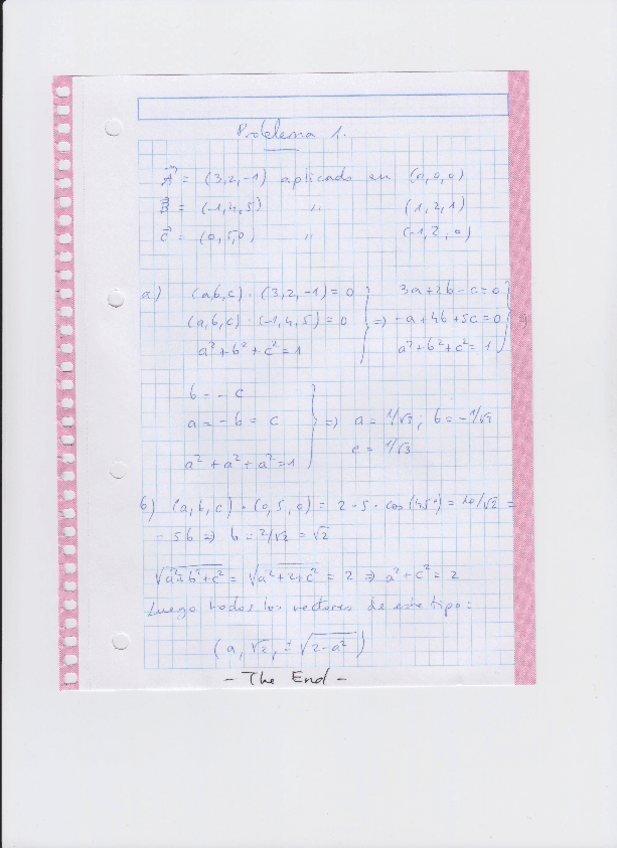 Problema 1.
A⃗ = (3,2,-1) aplicado en (0,0,0)
B⃗ = (-1,4,5) " (1,2,1)
C⃗ = (0,5,0) " (-1,2,0)
a) (a,b,c) · (3,2,-1) = 0 } 3a+2b-c=0 }
(a,b,c) · (-1,4,5) = 0 } => -a+4b+5c=0 } =>
a²+b²+c²=1 } a²+b²+c²=1 }
b = -c
a = -b = c } => a = 1/√3; b = -1/√3
c = 1/√3
a²+a²+a²=1
b) (a,b,c) · (0,5,0) = 2·5·cos(45º) = 10/√2 =
= 5b => b = 2/√2 = √2
√(a²+b²+c²) = √(a²+2+c²) = 2 => a²+c² = 2
Luego todos los vectores de este tipo:
(a, √2, ±√(2-a²))
- The End -